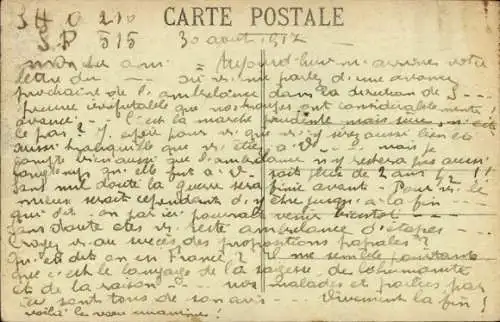 3 H O 210
CARTE POSTALE
S.P. 515
30 août 1917
Mon cher ami = Aujourd'hui m'arrive votre
lettre du --- où v. me parlez d'une avance
prochaine de l'ambulance dans la direction de S----
preuve irréfutable que nos troupes ont considérablement
avancé --- C'est la marche prudente mais sûre, n'est
ce pas? J'espère pour v. que v. y serez aussi bien et
aussi tranquille que v. étiez à V--- mais je
compte bien aussi que l'ambulance n'y restera pas aussi
longtemps qu'elle fut à V- soit plus de 2 ans 1/2 !!!
Sans nul doute la guerre sera finie avant - Pour v. le
mieux serait cependant d'y être jusqu'à la fin ----
qui dit-on par ici pourrait venir bientôt ----
Sans doute êtes v. reste ambulance d'étapes --
Croyez v. au succès des propositions papales?
Qu'en dit on en France? Il me semble pourtant
que c'est le langage de la sagesse, de l'humanité
et de la raison --- nos malades et parlés par
ici sont tous de son avis -- Vivement la fin!
voilà le vœu unanime!